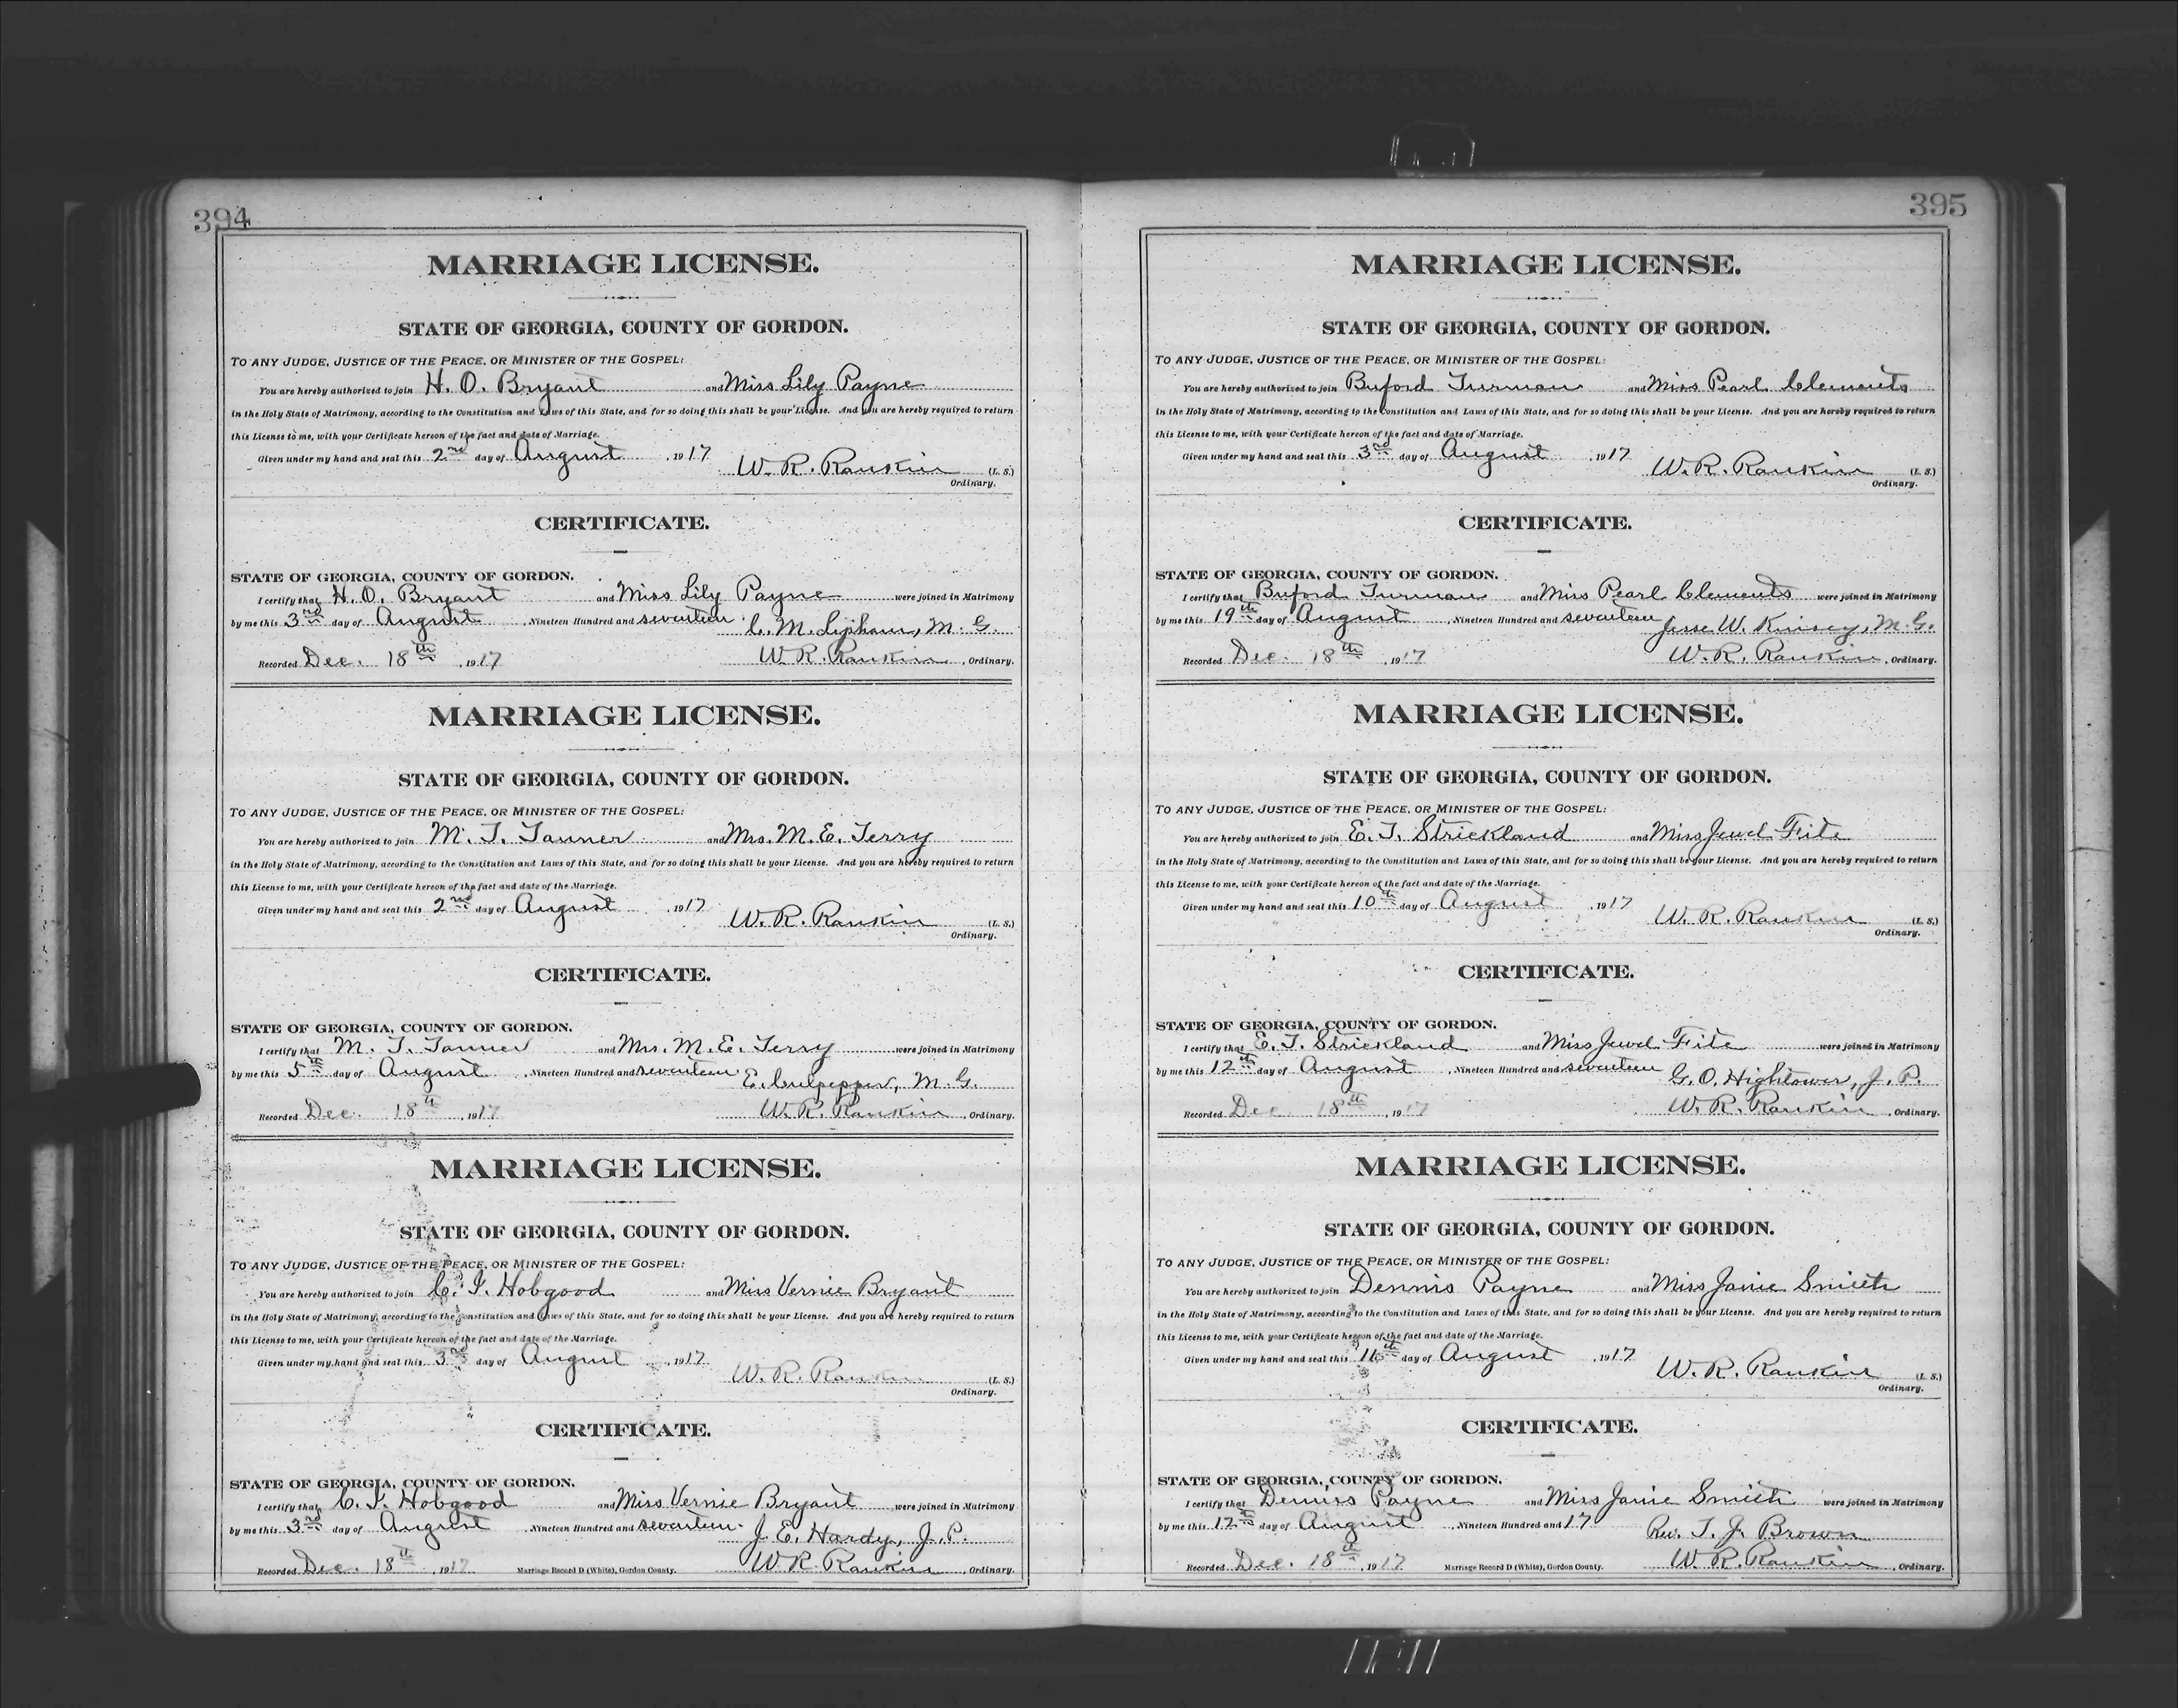 394
MARRIAGE LICENSE.
STATE OF GEORGIA, COUNTY OF GORDON.
TO ANY JUDGE, JUSTICE OF THE PEACE, OR MINISTER OF THE GOSPEL:
You are hereby authorized to join H. O. Bryant and Miss Lily Payne
in the Holy State of Matrimony, according to the Constitution and Laws of this State, and for so doing this shall be your License. And you are hereby required to return
this License to me, with your Certificate hereon of the fact and date of Marriage.
Given under my hand and seal this 2nd day of August, 1917
W. R. Rankin (L. S.)
Ordinary.
CERTIFICATE.
STATE OF GEORGIA, COUNTY OF GORDON.
I certify that H. O. Bryant and Miss Lily Payne were joined in Matrimony
by me this 3rd day of August, Nineteen Hundred and seventeen C. M. Lipham, M. G.
Recorded Dec. 18th, 1917 W. R. Rankin, Ordinary.
MARRIAGE LICENSE.
STATE OF GEORGIA, COUNTY OF GORDON.
TO ANY JUDGE, JUSTICE OF THE PEACE, OR MINISTER OF THE GOSPEL:
You are hereby authorized to join M. T. Tanner and Mrs. M. E. Terry
in the Holy State of Matrimony, according to the Constitution and Laws of this State, and for so doing this shall be your License. And you are hereby required to return
this License to me, with your Certificate hereon of the fact and date of the Marriage.
Given under my hand and seal this 2nd day of August, 1917
W. R. Rankin (L. S.)
Ordinary.
CERTIFICATE.
STATE OF GEORGIA, COUNTY OF GORDON.
I certify that M. T. Tanner and Mrs. M. E. Terry were joined in Matrimony
by me this 5th day of August, Nineteen Hundred and seventeen E. Culpepper, M. G.
Recorded Dec. 18th, 1917 W. R. Rankin, Ordinary.
MARRIAGE LICENSE.
STATE OF GEORGIA, COUNTY OF GORDON.
TO ANY JUDGE, JUSTICE OF THE PEACE, OR MINISTER OF THE GOSPEL:
You are hereby authorized to join C. I. Hobgood and Miss Vernie Bryant
in the Holy State of Matrimony, according to the Constitution and Laws of this State, and for so doing this shall be your License. And you are hereby required to return
this License to me, with your Certificate hereon of the fact and date of the Marriage.
Given under my hand and seal this 3rd day of August, 1917
W. R. Rankin (L. S.)
Ordinary.
CERTIFICATE.
STATE OF GEORGIA, COUNTY OF GORDON.
I certify that C. I. Hobgood and Miss Vernie Bryant were joined in Matrimony
by me this 3rd day of August, Nineteen Hundred and seventeen J. E. Hardy, J. P.
Recorded Dec. 18th, 1917 Marriage Record D (White), Gordon County. W. R. Rankin, Ordinary.
395
MARRIAGE LICENSE.
STATE OF GEORGIA, COUNTY OF GORDON.
TO ANY JUDGE, JUSTICE OF THE PEACE, OR MINISTER OF THE GOSPEL:
You are hereby authorized to join Buford Turman and Miss Pearl Clements
in the Holy State of Matrimony, according to the Constitution and Laws of this State, and for so doing this shall be your License. And you are hereby required to return
this License to me, with your Certificate hereon of the fact and date of Marriage.
Given under my hand and seal this 3rd day of August, 1917
W. R. Rankin (L. S.)
Ordinary.
CERTIFICATE.
STATE OF GEORGIA, COUNTY OF GORDON.
I certify that Buford Turman and Miss Pearl Clements were joined in Matrimony
by me this 19th day of August, Nineteen Hundred and seventeen Jesse W. Kinsey, M. G.
Recorded Dec. 18th, 1917 W. R. Rankin, Ordinary.
MARRIAGE LICENSE.
STATE OF GEORGIA, COUNTY OF GORDON.
TO ANY JUDGE, JUSTICE OF THE PEACE, OR MINISTER OF THE GOSPEL:
You are hereby authorized to join E. T. Strickland and Miss Jewel Fite
in the Holy State of Matrimony, according to the Constitution and Laws of this State, and for so doing this shall be your License. And you are hereby required to return
this License to me, with your Certificate hereon of the fact and date of the Marriage.
Given under my hand and seal this 10th day of August, 1917
W. R. Rankin (L. S.)
Ordinary.
CERTIFICATE.
STATE OF GEORGIA, COUNTY OF GORDON.
I certify that E. T. Strickland and Miss Jewel Fite were joined in Matrimony
by me this 12th day of August, Nineteen Hundred and seventeen G. O. Hightower, J. P.
Recorded Dec. 18th, 1917 W. R. Rankin, Ordinary.
MARRIAGE LICENSE.
STATE OF GEORGIA, COUNTY OF GORDON.
TO ANY JUDGE, JUSTICE OF THE PEACE, OR MINISTER OF THE GOSPEL:
You are hereby authorized to join Dennis Payne and Miss Janie Smith
in the Holy State of Matrimony, according to the Constitution and Laws of this State, and for so doing this shall be your License. And you are hereby required to return
this License to me, with your Certificate hereon of the fact and date of the Marriage.
Given under my hand and seal this 11th day of August, 1917
W. R. Rankin (L. S.)
Ordinary.
CERTIFICATE.
STATE OF GEORGIA, COUNTY OF GORDON.
I certify that Dennis Payne and Miss Janie Smith were joined in Matrimony
by me this 12th day of August, Nineteen Hundred and 17 Rev. T. J. Brown
Recorded Dec. 18th, 1917 Marriage Record D (White), Gordon County. W. R. Rankin, Ordinary.